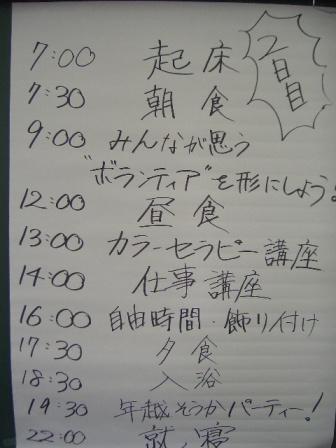 2日目
7:00 起床
7:30 朝食
9:00 みんなが思う
"ボランティア"を形にしよう。
12:00 昼食
13:00 カラーセラピー講座
14:00 仕事講座
16:00 自由時間・飾り付け
17:30 夕食
18:30 入浴
19:30 年越そうかパーティー!
22:00 就寝